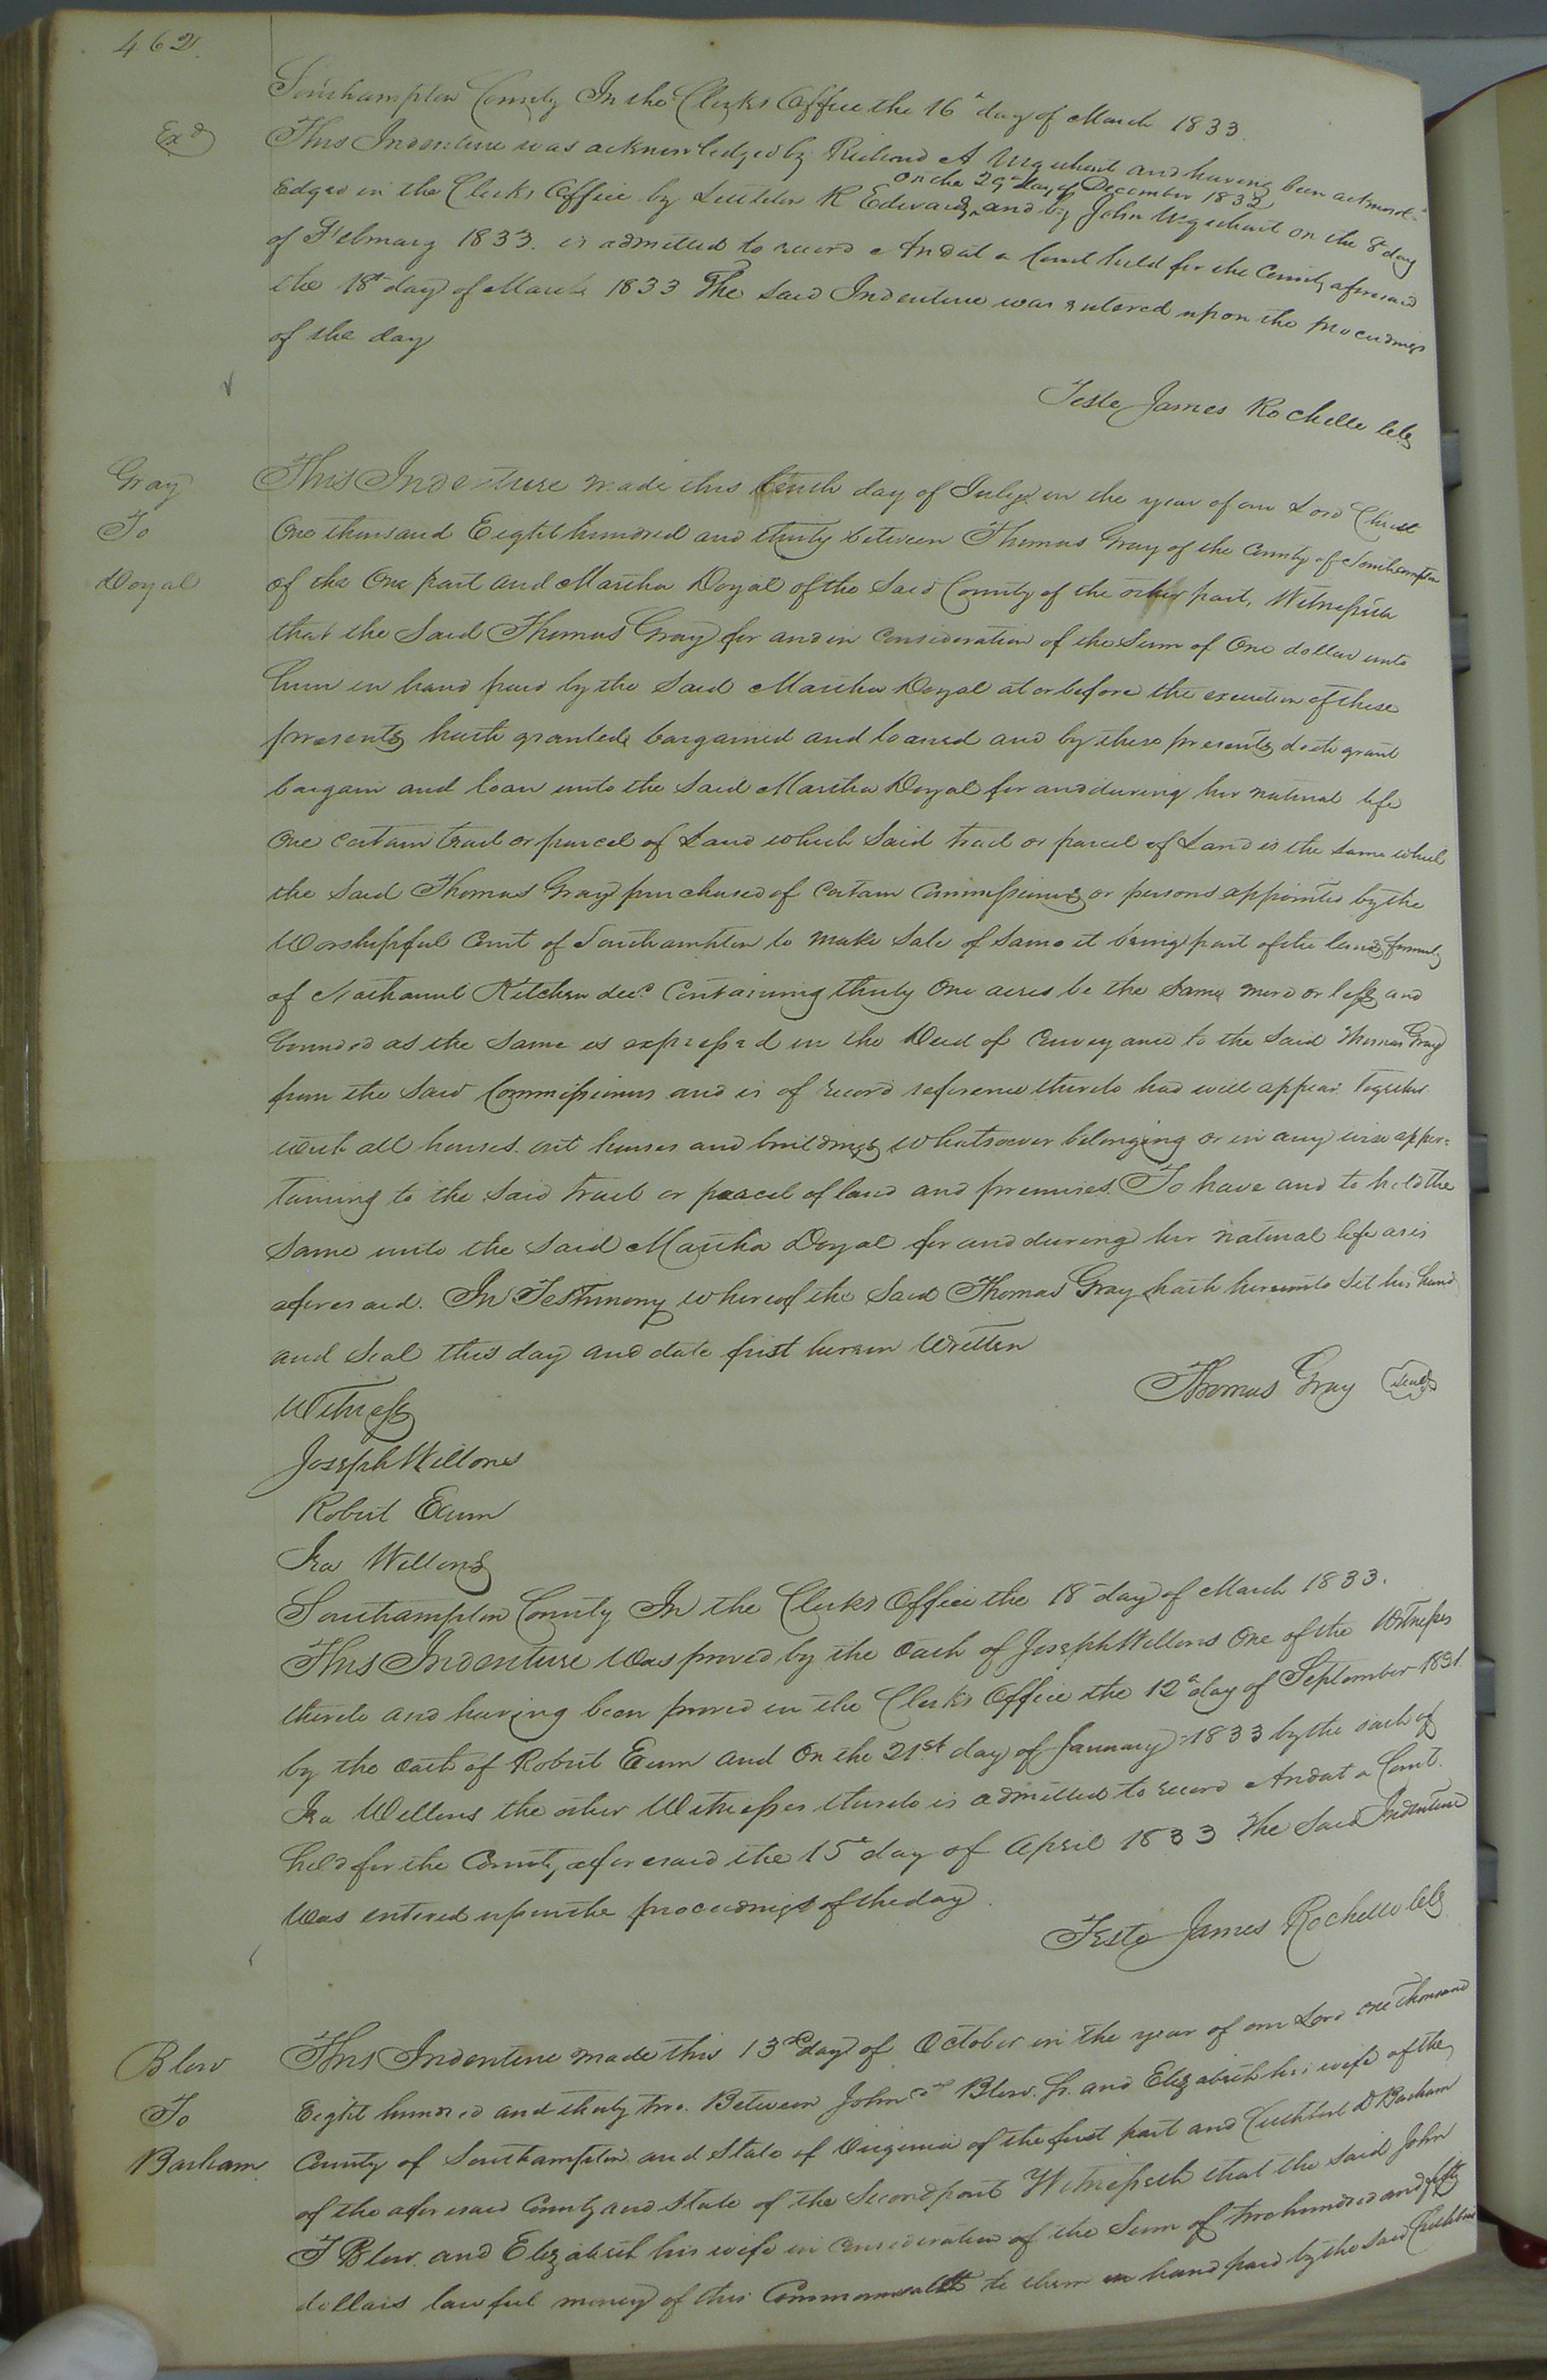 462.
Southampton County In the Clerks Office the 16th day of March 1833.
Exd
This Indenture was acknowledged by Richard A Urquhart and having been acknowl-
on the 29th day of December 1832
edged in the Clerks Office by Littleton R Edwards, and by John Urquhart on the 8th day
of February 1833. is admitted to record And at a Court held for the County aforesaid
the 18th day of March 1833 The said Indenture was entered upon the proceedings
of the day
Teste James Rochelle Clk
Gray
To
Doyal
This Indenture made this tenth day of July in the year of our Lord Christ
One thousand Eight hundred and thirty between Thomas Gray of the County of Southampton
of the One part and Martha Doyal of the Said County of the other part, Witnesseth
that the Said Thomas Gray for and in Consideration of the Sum of One dollar unto
him in hand paid by the Said Martha Doyal at or before the execution of these
presents hath granted bargained and loaned and by these presents doth grant
bargain and loan unto the Said Martha Doyal for and during her natural life
One certain tract or parcel of Land which Said tract or parcel of Land is the same which
the Said Thomas Gray purchased of Certain Commissioners or persons appointed by the
Worshipful Court of Southampton to make Sale of same it being part of the land formerly
of Nathaniel Kitchen decd Containing thirty One acres be the Same more or less and
bounded as the Same is expressed in the Deed of Conveyance to the Said Thomas Gray
from the Said Commissioners and is of record reference thereto had will appear. Together
with all houses. out houses and buildings whatsoever belonging or in any wise apper=
taining to the Said tract or parcel of land and premises. To have and to hold the
Same unto the Said Martha Doyal for and during her natural life as is
aforesaid. In Testimony whereof the Said Thomas Gray hath hereunto Set his hand
and Seal this day and date first herein Written
Thomas Gray Seal
Witness
Joseph Wellons
Robert Exum
Ira Wellons
Southampton County In the Clerks Office the 18th day of March 1833.
This Indenture Was proved by the Oath of Joseph Wellons One of the Witnesses
thereto and having been proved in the Clerks Office the 12th day of September 1831
by the oath of Robert Exum and On the 21st day of January 1833 by the oath of
Ira Wellons the other Witnesses thereto is admitted to record And at a Court
held for the County aforesaid the 15th day of April 1833 The Said Indenture
Was entered upon the proceedings of the day.
Teste James Rochelle Clk
Blow
To
Barham
This Indenture made this 13th day of October in the year of our Lord one thousand
Eight hundred and thirty two. Between John T Blow. Jr. and Elizabeth his wife of the
County of Southampton and State of Virginia of the first part and Cuthbert D Barham
of the aforesaid County and State of the Second part Witnesseth that the said John
T Blow. and Elizabeth his wife in Consideration of the Sum of two hundred and fifty
dollars lawful money of this Commonwealth to them in hand paid by the said Cuthbert